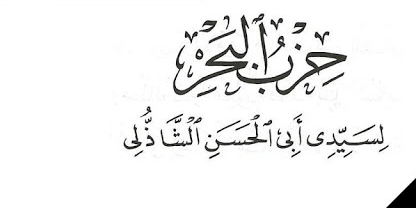 حِزْبُ ٱلْبَحْرِ
لِسَيِّدِى أَبِى ٱلْحَسَنِ ٱلْشَّاذُلِى